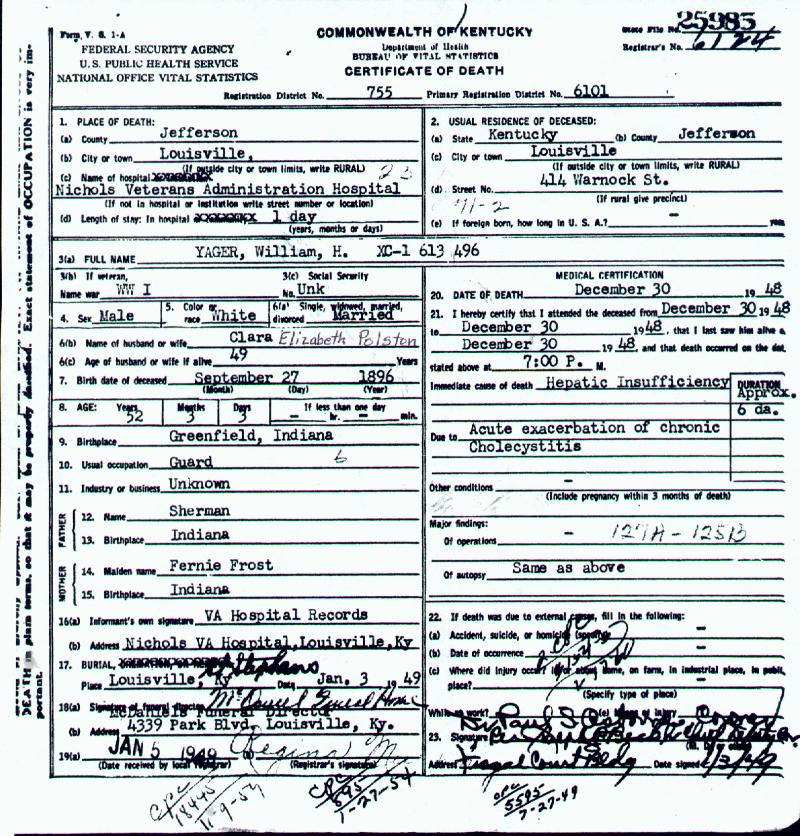 Form V. S. 1-A
FEDERAL SECURITY AGENCY
U. S. PUBLIC HEALTH SERVICE
NATIONAL OFFICE VITAL STATISTICS
COMMONWEALTH OF KENTUCKY
Department of Health
BUREAU OF VITAL STATISTICS
CERTIFICATE OF DEATH
State File No. 25985
Registrar's No. 6124
Registration District No. 755 Primary Registration District No. 6101
DEATH in plain terms, so that it may be properly classified. Exact statement of OCCUPATION is very im-
portant.
1. PLACE OF DEATH:
(a) County Jefferson
(b) City or town Louisville,
(If outside city or town limits, write RURAL)
(c) Name of hospital 23
Nichols Veterans Administration Hospital
(If not in hospital or institution write street number or location)
(d) Length of stay: In hospital 1 day
(years, months or days)
2. USUAL RESIDENCE OF DECEASED:
(a) State Kentucky (b) County Jefferson
(c) City or town Louisville
(If outside city or town limits, write RURAL)
(d) Street No. 414 Warnock St.
71-2 (If rural give precinct)
(e) If foreign born, how long in U. S. A.? - years
3(a) FULL NAME YAGER, William, H. XC-1 613 496
3(b) If veteran,
Name war WW I
3(c) Social Security
No. Unk
4. Sex Male
5. Color or
race White
6(a) Single, widowed, married,
divorced Married
6(b) Name of husband or wife Clara Elizabeth Polston
6(c) Age of husband or wife if alive 49 Years
7. Birth date of deceased September 27 1896
(Month) (Day) (Year)
8. AGE: Years Months Days If less than one day
52 3 3 - hr. - min.
9. Birthplace Greenfield, Indiana
10. Usual occupation Guard 6
11. Industry or business Unknown
FATHER
12. Name Sherman
13. Birthplace Indiana
MOTHER
14. Maiden name Fernie Frost
15. Birthplace Indiana
16(a) Informant's own signature VA Hospital Records
(b) Address Nichols VA Hospital, Louisville, Ky
17. BURIAL, St Stephans
Place Louisville, Ky Date Jan. 3 1949
18(a) Signature of funeral director McDaniel Funeral Home
McDaniels Funeral Director
(b) Address 4339 Park Blvd, Louisville, Ky.
19(a) JAN 5 1949 (b) Regina M
(Date received by local registrar) (Registrar's signature)
MEDICAL CERTIFICATION
20. DATE OF DEATH December 30 1948
21. I hereby certify that I attended the deceased from December 30 1948
to December 30 1948, that I last saw him alive on
December 30 1948, and that death occurred on the date
stated above at 7:00 P. M.
Immediate cause of death Hepatic Insufficiency
DURATION
Approx.
6 da.
Due to Acute exacerbation of chronic
Cholecystitis
Other conditions -
(Include pregnancy within 3 months of death)
Major findings:
Of operations - 127A - 125B
Of autopsy Same as above
22. If death was due to external causes, fill in the following:
(a) Accident, suicide, or homicide (specify) -
(b) Date of occurrence -
(c) Where did injury occur? in or about home, on farm, in industrial place, in public
place? -
(Specify type of place)
While at work? (e) Means of injury
23. Signature
Address Fiscal Court Bldg Date signed 1/3/49
CPC
18445
11-9-54
CPC
595
1-27-54
CPC
5595
7-27-49